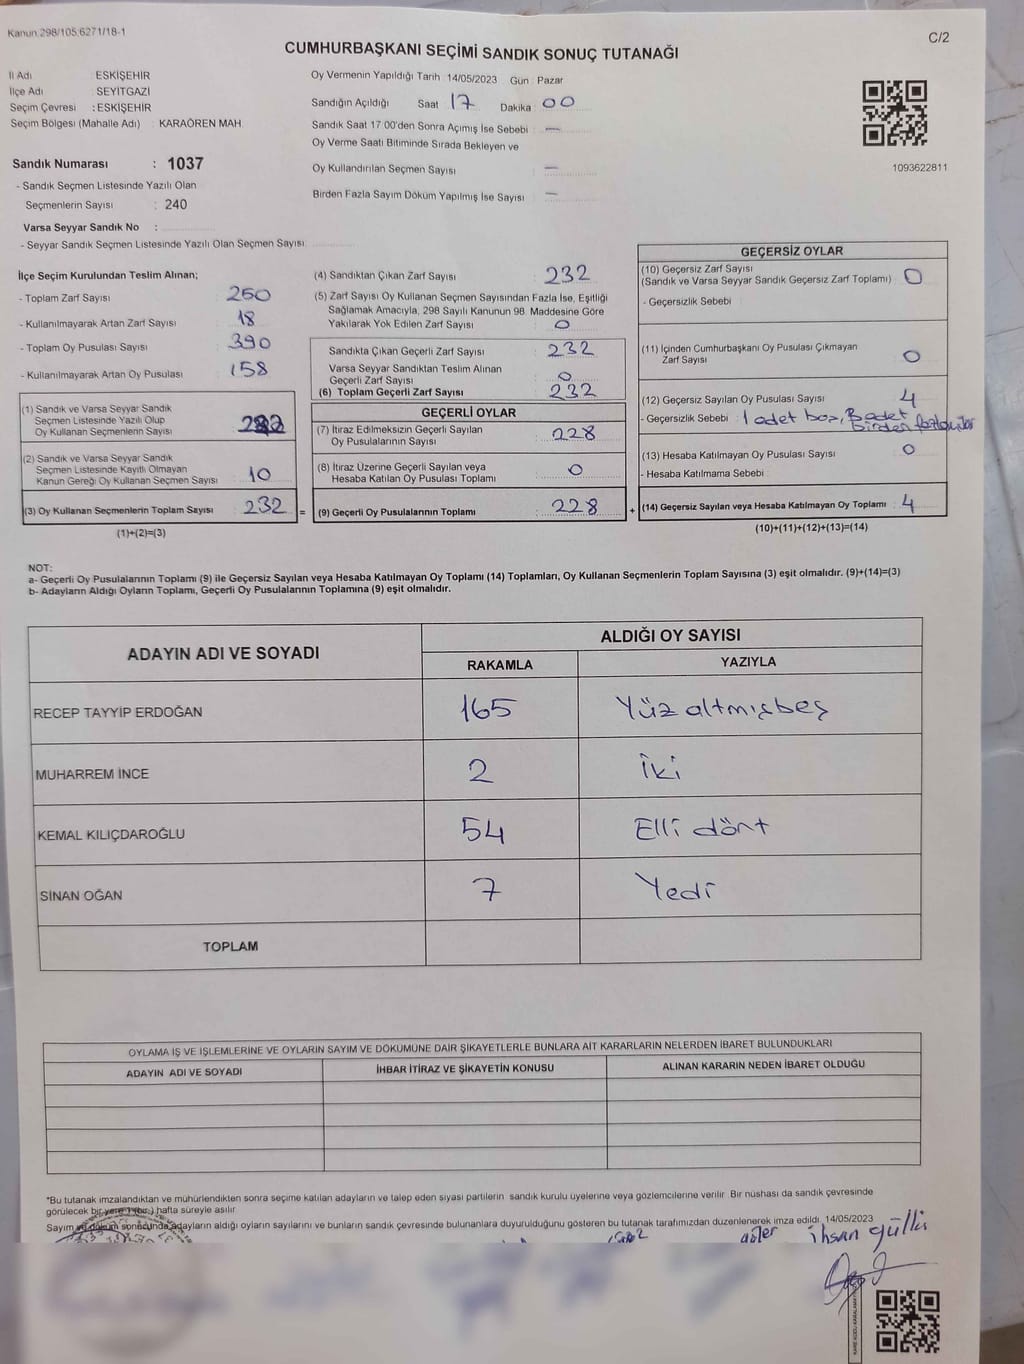 Kanun.298/105,6271/18-1
C/2
CUMHURBAŞKANI SEÇİMİ SANDIK SONUÇ TUTANAĞI
İl Adı : ESKİŞEHİR
İlçe Adı : SEYİTGAZİ
Seçim Çevresi : ESKİŞEHİR
Seçim Bölgesi (Mahalle Adı) : KARAÖREN MAH.
Oy Vermenin Yapıldığı Tarih : 14/05/2023 Gün : Pazar
Sandığın Açıldığı Saat 17 Dakika 00
Sandık Saat 17:00'den Sonra Açımış İse Sebebi : —
Oy Verme Saati Bitiminde Sırada Bekleyen ve
Oy Kullandırılan Seçmen Sayısı : —
Birden Fazla Sayım Döküm Yapılmış İse Sayısı : —
1093622811
Sandık Numarası : 1037
- Sandık Seçmen Listesinde Yazılı Olan
Seçmenlerin Sayısı : 240
Varsa Seyyar Sandık No :
- Seyyar Sandık Seçmen Listesinde Yazılı Olan Seçmen Sayısı:
İlçe Seçim Kurulundan Teslim Alınan;
- Toplam Zarf Sayısı : 250
- Kullanılmayarak Artan Zarf Sayısı : 18
- Toplam Oy Pusulası Sayısı : 390
- Kullanılmayarak Artan Oy Pusulası : 158
(1) Sandık ve Varsa Seyyar Sandık
Seçmen Listesinde Yazılı Olup
Oy Kullanan Seçmenlerin Sayısı
(2) Sandık ve Varsa Seyyar Sandık
Seçmen Listesinde Kayıtlı Olmayan
Kanun Gereği Oy Kullanan Seçmen Sayısı : 10
(3) Oy Kullanan Seçmenlerin Toplam Sayısı : 232 =
(1)+(2)=(3)
(4) Sandıktan Çıkan Zarf Sayısı : 232
(5) Zarf Sayısı Oy Kullanan Seçmen Sayısından Fazla İse, Eşitliği
Sağlamak Amacıyla, 298 Sayılı Kanunun 98. Maddesine Göre
Yakılarak Yok Edilen Zarf Sayısı : 0
Sandıkta Çıkan Geçerli Zarf Sayısı : 232
Varsa Seyyar Sandıktan Teslim Alınan
Geçerli Zarf Sayısı : 0
(6) Toplam Geçerli Zarf Sayısı : 232
GEÇERLİ OYLAR
(7) İtiraz Edilmeksizin Geçerli Sayılan
Oy Pusulalarının Sayısı : 228
(8) İtiraz Üzerine Geçerli Sayılan veya
Hesaba Katılan Oy Pusulası Toplamı : 0
(9) Geçerli Oy Pusulalarının Toplamı : 228 +
GEÇERSİZ OYLAR
(10) Geçersiz Zarf Sayısı : 0
(Sandık ve Varsa Seyyar Sandık Geçersiz Zarf Toplamı)
- Geçersizlik Sebebi :
(11) İçinden Cumhurbaşkanı Oy Pusulası Çıkmayan
Zarf Sayısı : 0
(12) Geçersiz Sayılan Oy Pusulası Sayısı : 4
- Geçersizlik Sebebi : 1 adet boş, adet
Birden
(13) Hesaba Katılmayan Oy Pusulası Sayısı : 0
- Hesaba Katılmama Sebebi :
(14) Geçersiz Sayılan veya Hesaba Katılmayan Oy Toplamı : 4
(10)+(11)+(12)+(13)=(14)
NOT:
a- Geçerli Oy Pusulalarının Toplamı (9) ile Geçersiz Sayılan veya Hesaba Katılmayan Oy Toplamı (14) Toplamları, Oy Kullanan Seçmenlerin Toplam Sayısına (3) eşit olmalıdır. (9)+(14)=(3)
b- Adayların Aldığı Oyların Toplamı, Geçerli Oy Pusulalarının Toplamına (9) eşit olmalıdır.
ADAYIN ADI VE SOYADI
ALDIĞI OY SAYISI
RAKAMLA YAZIYLA
RECEP TAYYİP ERDOĞAN 165 Yüz altmışbeş
MUHARREM İNCE 2 İki
KEMAL KILIÇDAROĞLU 54 Elli dört
SİNAN OĞAN 7 Yedi
TOPLAM
OYLAMA İŞ VE İŞLEMLERİNE VE OYLARIN SAYIM VE DÖKÜMÜNE DAİR ŞİKAYETLERLE BUNLARA AİT KARARLARIN NELERDEN İBARET BULUNDUKLARI
ADAYIN ADI VE SOYADI İHBAR İTİRAZ VE ŞİKAYETİN KONUSU ALINAN KARARIN NEDEN İBARET OLDUĞU
*Bu tutanak imzalandıktan ve mühürlendikten sonra seçime katılan adayların ve talep eden siyasi partilerin sandık kurulu üyelerine veya gözlemcilerine verilir. Bir nüshası da sandık çevresinde
görülecek bir yere 1 (bir) hafta süreyle asılır.
Sayım ve döküm sonucunda adayların aldığı oyların sayılarını ve bunların sandık çevresinde bulunanlara duyurulduğunu gösteren bu tutanak tarafımızdan düzenlenerek imza edildi. 14/05/2023
ihsan güllü